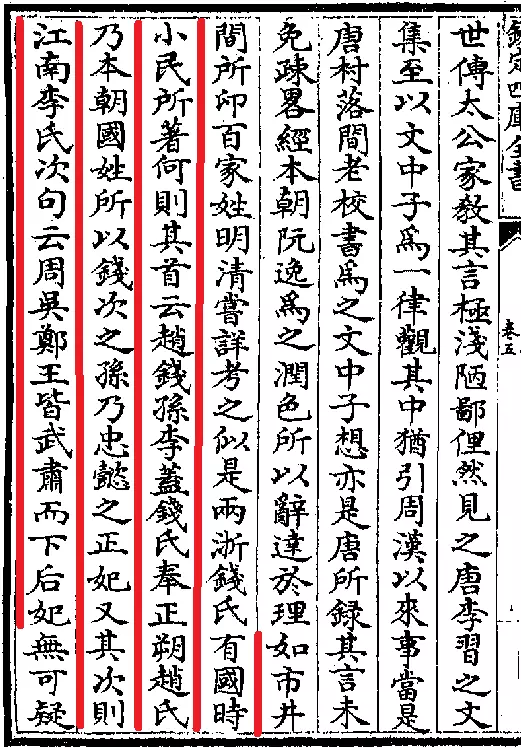 欽定四庫全書
卷五
世傳太公家教其言極淺陋鄙俚然見之唐李習之文
集至以文中子爲一律觀其中猶引周漢以來事當是
唐村落間老校書爲之文中子想亦是唐所録其言未
免疎畧經本朝阮逸爲之潤色所以辭達於理如市井
間所印百家姓明清嘗詳考之似是兩浙錢氏有國時
小民所著何則其首云趙錢孫李蓋錢氏奉正朔趙氏
乃本朝國姓所以錢次之孫乃忠懿之正妃又其次則
江南李氏次句云周吳鄭王皆武肅而下后妃無可疑